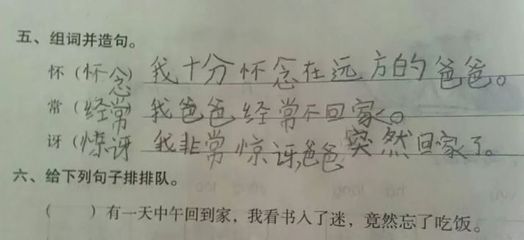 五、组词并造句。
怀（怀念）我十分怀念在远方的爸爸。
常（经常）我爸爸经常不回家。
讶（惊讶）我非常惊讶,爸爸突然回家了。
六、给下列句子排排队。
（ ）有一天中午回到家，我看书入了迷，竟然忘了吃饭。